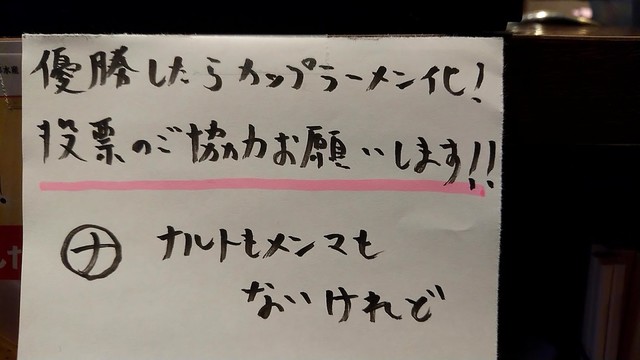 優勝したらカップラーメン化!
投票のご協力お願いします!!
ナ ナルトもメンマも
ないけれど